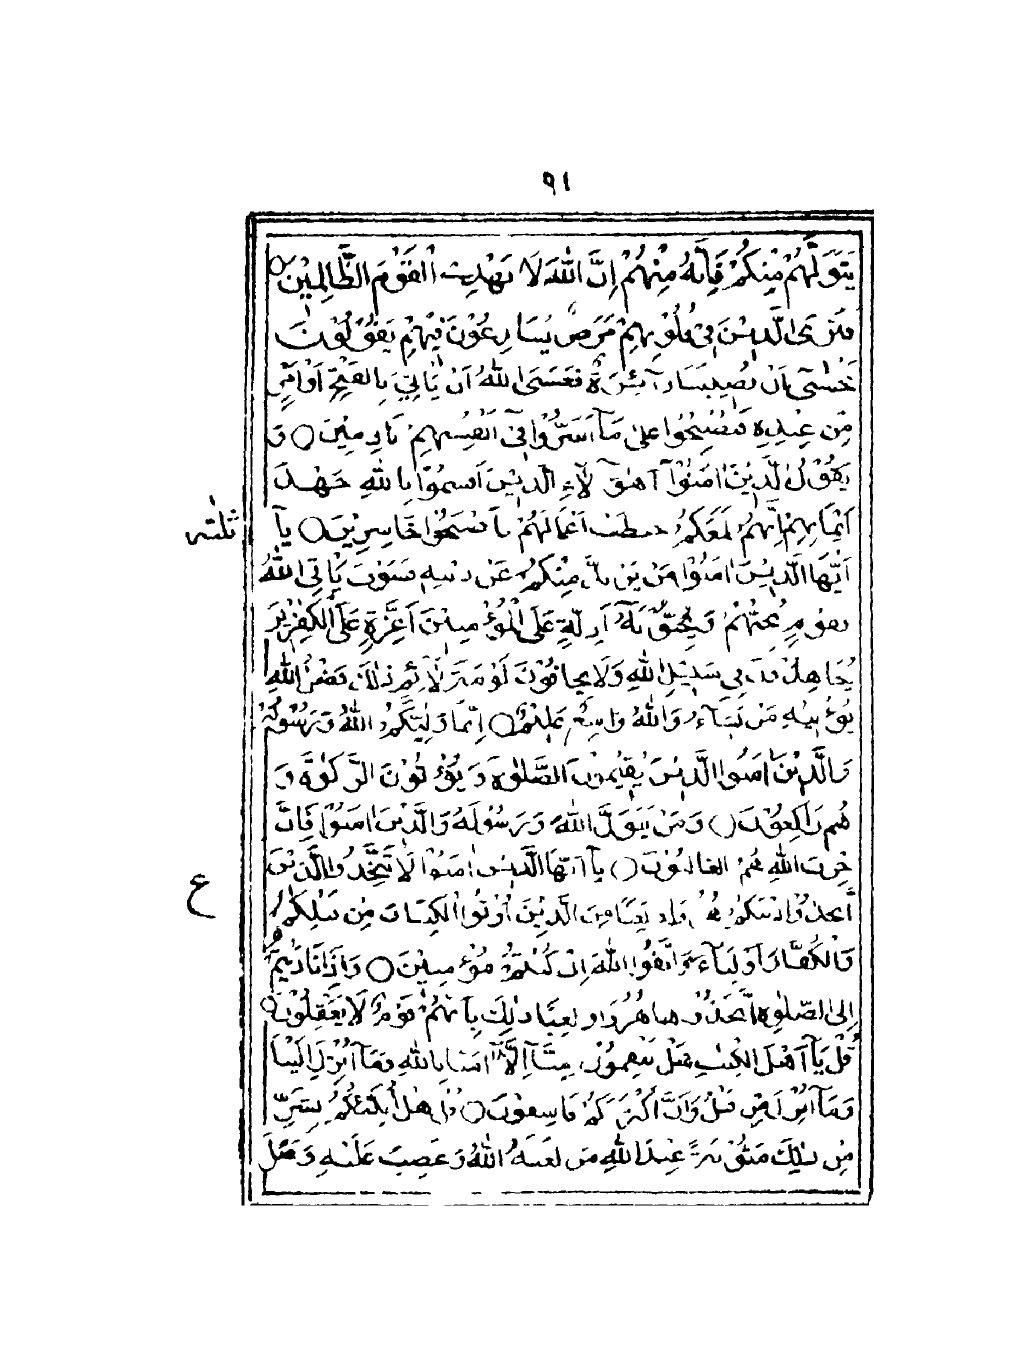 ٩١
يَتَوَلَّهُمْ مِنْكُمْ فَاِنَّهُ مِنْهُمْ اِنَّ اللّٰهَ لَا يَهْدِى الْقَوْمَ الظَّالِمِيْنَ ○
فَتَرَى الَّذِيْنَ فِىْ قُلُوْبِهِمْ مَرَضٌ يُسَارِعُوْنَ فِيْهِمْ يَقُوْلُوْنَ
نَخْشٰٓى اَنْ تُصِيْبَنَا دَآئِرَةٌ فَعَسَى اللّٰهُ اَنْ يَاْتِىَ بِالْفَتْحِ اَوْ اَمْرٍ
مِّنْ عِنْدِهٖ فَيُصْبِحُوْا عَلٰى مَآ اَسَرُّوْا فِىْٓ اَنْفُسِهِمْ نَادِمِيْنَ ○ وَ
يَقُوْلُ الَّذِيْنَ اٰمَنُوْٓا اَهٰٓؤُلَآءِ الَّذِيْنَ اَقْسَمُوْا بِاللّٰهِ جَهْدَ
اَيْمَانِهِمْ اِنَّهُمْ لَمَعَكُمْ حَبِطَتْ اَعْمَالُهُمْ فَاَصْبَحُوْا خَاسِرِيْنَ ○ يٰٓا
ثلثة
اَيُّهَا الَّذِيْنَ اٰمَنُوْا مَنْ يَرْتَدَّ مِنْكُمْ عَنْ دِيْنِهٖ فَسَوْفَ يَاْتِى اللّٰهُ
بِقَوْمٍ يُحِبُّهُمْ وَيُحِبُّوْنَهٗٓ اَذِلَّةٍ عَلَى الْمُؤْمِنِيْنَ اَعِزَّةٍ عَلَى الْكٰفِرِيْنَ
يُجَاهِدُوْنَ فِى سَبِيْلِ اللّٰهِ وَلَا يَخَافُوْنَ لَوْمَةَ لَآئِمٍ ذٰلِكَ فَضْلُ اللّٰهِ
يُؤْتِيْهِ مَنْ يَشَآءُ وَاللّٰهُ وَاسِعٌ عَلِيْمٌ ○ اِنَّمَا وَلِيُّكُمُ اللّٰهُ وَرَسُوْلُهُ
وَالَّذِيْنَ اٰمَنُوا الَّذِيْنَ يُقِيْمُوْنَ الصَّلٰوةَ وَيُؤْتُوْنَ الزَّكٰوةَ وَ
هُمْ رَاكِعُوْنَ ○ وَمَنْ يَتَوَلَّ اللّٰهَ وَرَسُوْلَهُ وَالَّذِيْنَ اٰمَنُوْا فَاِنَّ
حِزْبَ اللّٰهِ هُمُ الْغَالِبُوْنَ ○ يَآ اَيُّهَا الَّذِيْنَ اٰمَنُوْا لَا تَتَّخِذُوا الَّذِيْنَ
ع
اتَّخَذُوْا دِيْنَكُمْ هُزُوًا وَلَعِبًا مِنَ الَّذِيْنَ اُوْتُوا الْكِتَابَ مِنْ قَبْلِكُمْ
وَالْكُفَّارَ اَوْلِيَآءَ وَاتَّقُوا اللّٰهَ اِنْ كُنْتُمْ مُؤْمِنِيْنَ ○ وَاِذَا نَادَيْتُمْ
اِلَى الصَّلٰوةِ اتَّخَذُوْهَا هُزُوًا وَلَعِبًا ذٰلِكَ بِاَنَّهُمْ قَوْمٌ لَا يَعْقِلُوْنَ ○
قُلْ يَآ اَهْلَ الْكِتٰبِ هَلْ تَنْقِمُوْنَ مِنَّآ اِلَّآ اَنْ اٰمَنَّا بِاللّٰهِ وَمَآ اُنْزِلَ اِلَيْنَا
وَمَآ اُنْزِلَ مِنْ قَبْلُ وَاَنَّ اَكْثَرَكُمْ فَاسِقُوْنَ ○ قُلْ هَلْ اُنَبِّئُكُمْ بِشَرٍّ
مِّنْ ذٰلِكَ مَثُوْبَةً عِنْدَ اللّٰهِ مَنْ لَعَنَهُ اللّٰهُ وَغَضِبَ عَلَيْهِ وَجَعَلَ